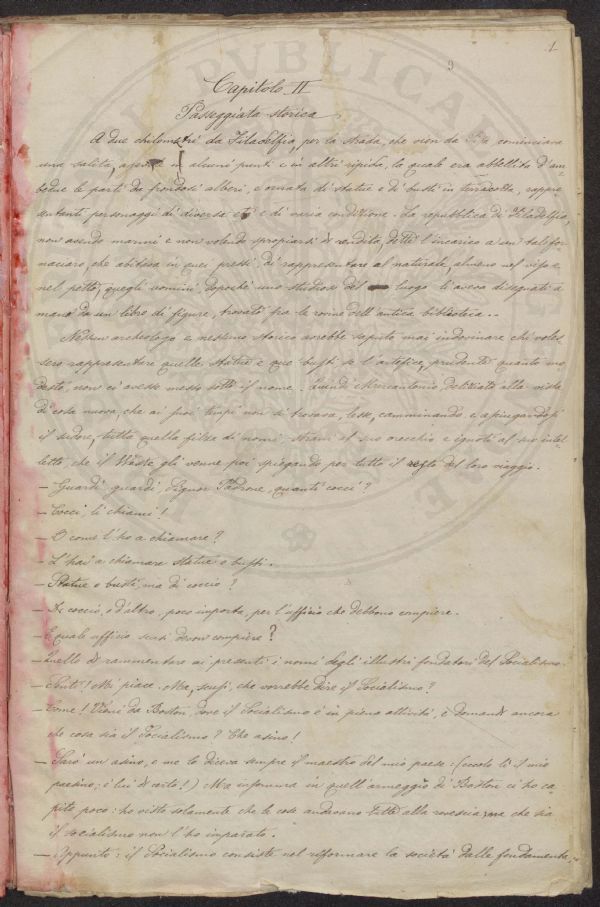 1
9
Capitolo II
Passeggiata storica
A due chilometri da Filadelfia, per la strada, che vien da Pisa, cominciava
una salita, agevole in alcuni punti e in altri ripida, la quale era abbellita d'am-
bedue le parti da frondosi alberi, e ornata di statue e di busti in terracotta, rappre-
sentanti personaggi di diversa età e di varia condizione. La repubblica di Filadelfia,
non avendo marmi e non volendo spropiarsi di rendita, dette l'incarico a un tal for-
naciaro, che abitava in quei pressi, di rappresentare al naturale, almeno nel viso e
nel petto, quegli uomini, dopochè uno studioso del luogo li aveva disegnati a
mano da un libro di figure, trovato fra le rovine dell'antica biblioteca..
Nessun archeologo e nessuno storico avrebbe saputo mai indovinare chi voles-
sero rappresentare quelle statue e que' busti se l'artefice, prudente quanto mo
desto, non ci avesse messo sotto il nome. Quindi Mercantonio, deliziato alla vista
di cose nuove, che ai suoi tempi non si trovava, lesse, camminando e asciugandosi
il sudore, tutta quella filza di nomi strani al suo orecchio e ignoti al suo intel-
letto, che il Waste gli venne poi spiegando per tutto il resto del loro viaggio.
— Guardi, guardi, Signor Padrone, quanti cocci?
— Cocci, li chiami!
— O come l'ho a chiamare?
— L'hai a chiamare statue e busti.
— Statue e busti, ma di coccio?
— Di coccio, o d'altro, poco importa, per l'ufficio che debbono compiere.
— E quale ufficio devon compiere?
— Quello di rammentare ai presenti i nomi degli illustri fondatori del Socialismo.
— Senti! Mi piace. Ma, scusi, che vorrebbe dire il Socialismo?
— Come! Vieni da Boston, dove il Socialismo è in piena attività, e domandi ancora
che cosa sia il Socialismo? Che asino!
— Sarò un asino, e me lo diceva sempre il maestro del mio paese: (eccolo lì il mio
paesino; è lui di certo!) Ma insomma in quell'armeggìo di Boston ci ho ca-
pito poco: ho visto solamente che le cose andavano tutte alla rovescia; ma che sia
il socialismo non l'ho imparato.
— Appunto: il Socialismo consiste nel riformare la società dalle fondamenta,